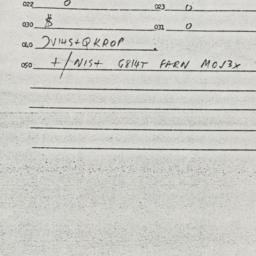 022 0 023 0
030 $ 031 0
040 JVI4S+QKROP.
050 +/NIS+ G8I4T FARN MOJ3X